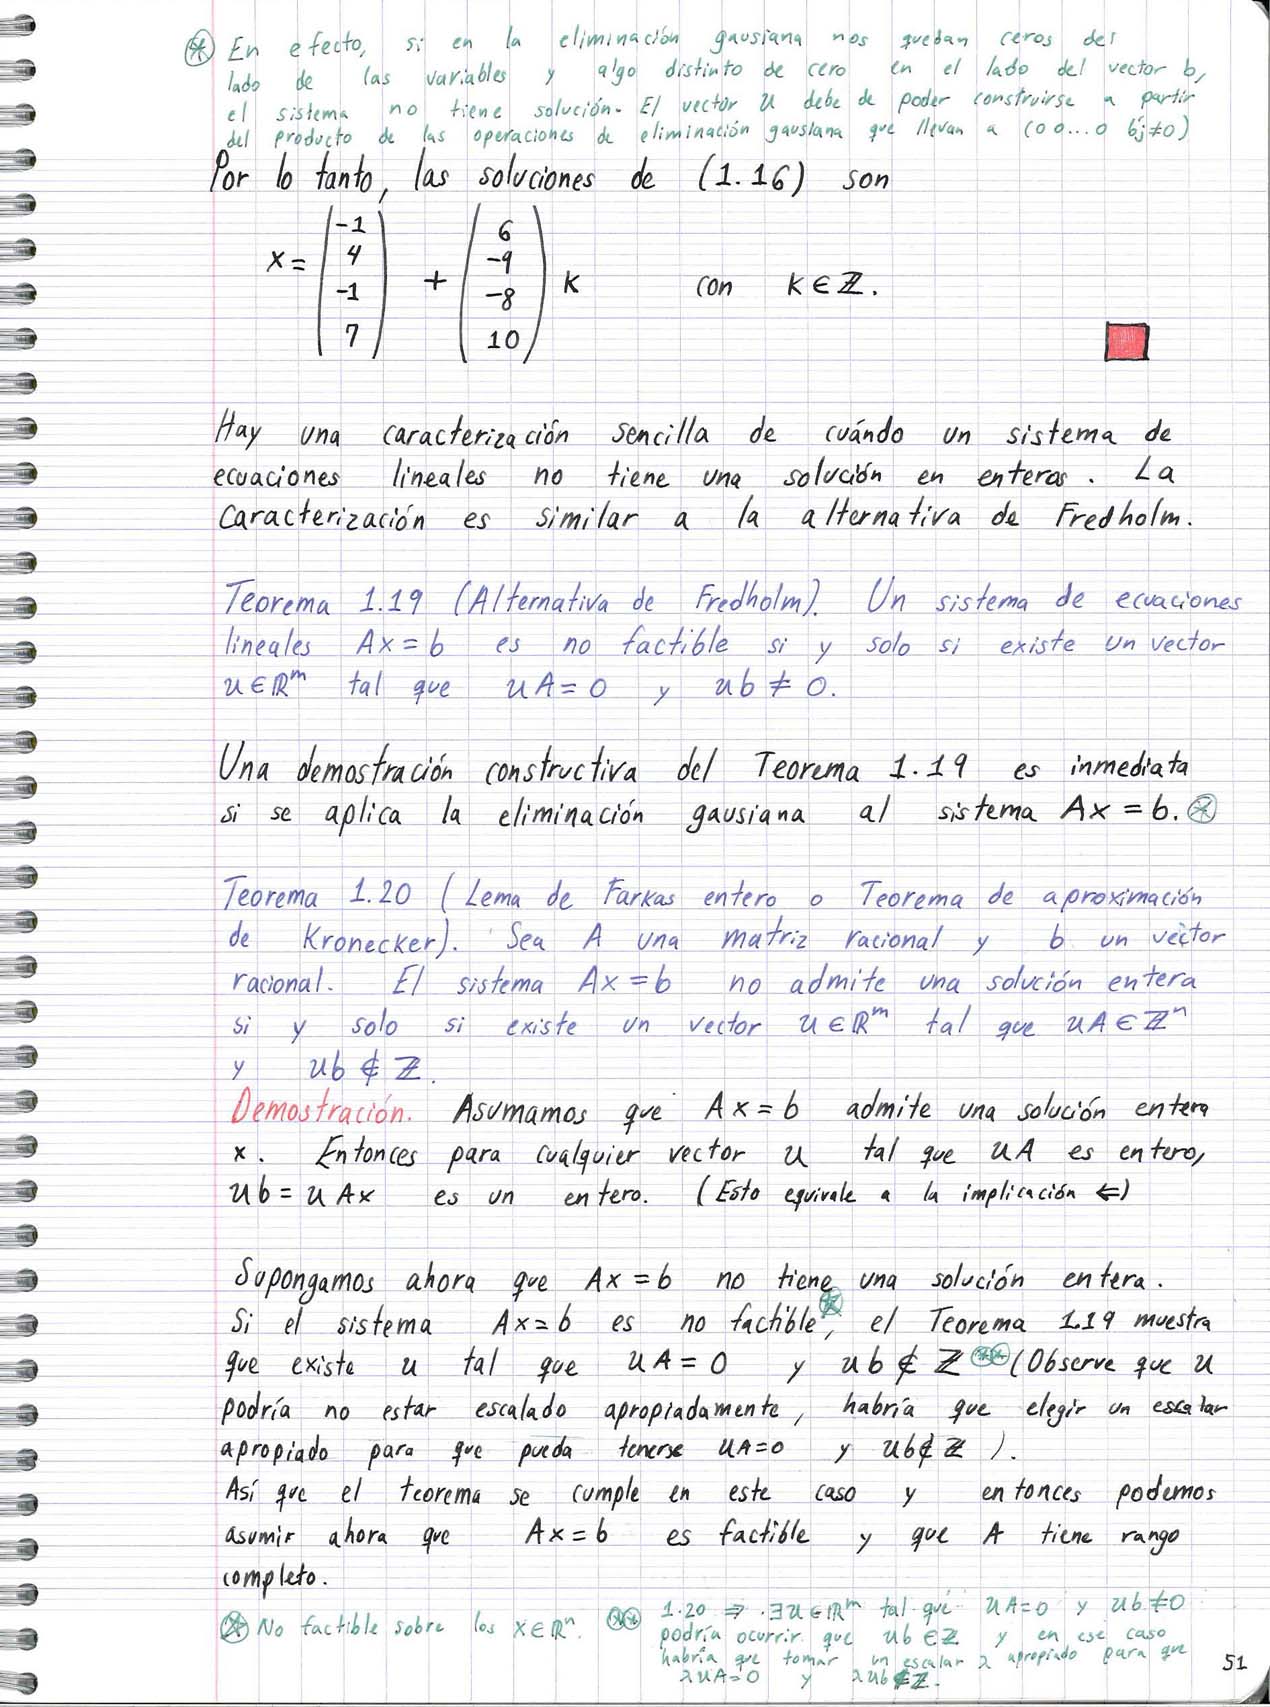 ⊛ En efecto, si en la eliminación gausiana nos quedan ceros del
lado de las variables y algo distinto de cero en el lado del vector b,
el sistema no tiene solución. El vector u debe de poder construirse a partir
del producto de las operaciones de eliminación gausiana que llevan a (0 0...0 b'j≠0)
Por lo tanto, las soluciones de (1.16) son
x = (-1 4 -1 7) + (6 -9 -8 10) k con k∈ℤ.
Hay una caracterización sencilla de cuándo un sistema de
ecuaciones lineales no tiene una solución en enteros. La
caracterización es similar a la alternativa de Fredholm.
Teorema 1.19 (Alternativa de Fredholm). Un sistema de ecuaciones
lineales Ax = b es no factible si y solo si existe un vector
u∈ℝᵐ tal que uA = 0 y ub ≠ 0.
Una demostración constructiva del Teorema 1.19 es inmediata
si se aplica la eliminación gausiana al sistema Ax = b. ⊛
Teorema 1.20 (Lema de Farkas entero o Teorema de aproximación
de Kronecker). Sea A una matriz racional y b un vector
racional. El sistema Ax = b no admite una solución entera
si y solo si existe un vector u∈ℝᵐ tal que uA∈ℤⁿ
y ub∉ℤ.
Demostración. Asumamos que Ax = b admite una solución entera
x. Entonces para cualquier vector u tal que uA es entero,
ub = uAx es un entero. (Esto equivale a la implicación ⇐)
Supongamos ahora que Ax = b no tiene una solución entera.
Si el sistema Ax = b es no factible⊛, el Teorema 1.19 muestra
que existe u tal que uA = 0 y ub∉ℤ ⊛⊛ (Observe que u
podría no estar escalado apropiadamente, habría que elegir un escalar
apropiado para que pueda tenerse uA=0 y ub∉ℤ).
Así que el teorema se cumple en este caso y entonces podemos
asumir ahora que Ax = b es factible y que A tiene rango
completo.
⊛ No factible sobre los x∈ℝⁿ.
⊛⊛ 1.20 ⇒ ∃u∈ℝᵐ tal que uA=0 y ub≠0
podría ocurrir que ub∈ℤ y en ese caso
habría que tomar un escalar λ apropiado para que
λuA=0 y λub∉ℤ.
51